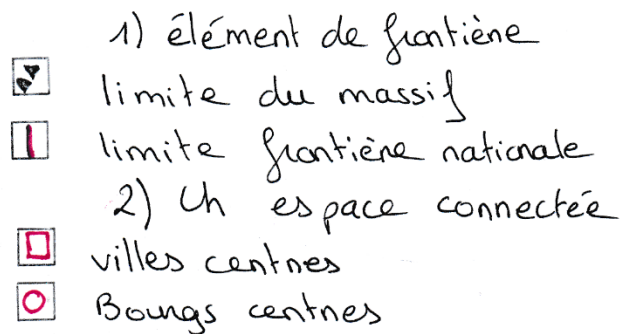 1) élément de frontière
limite du massif
limite frontière nationale
2) Un espace connectée
villes centres
Bourgs centres